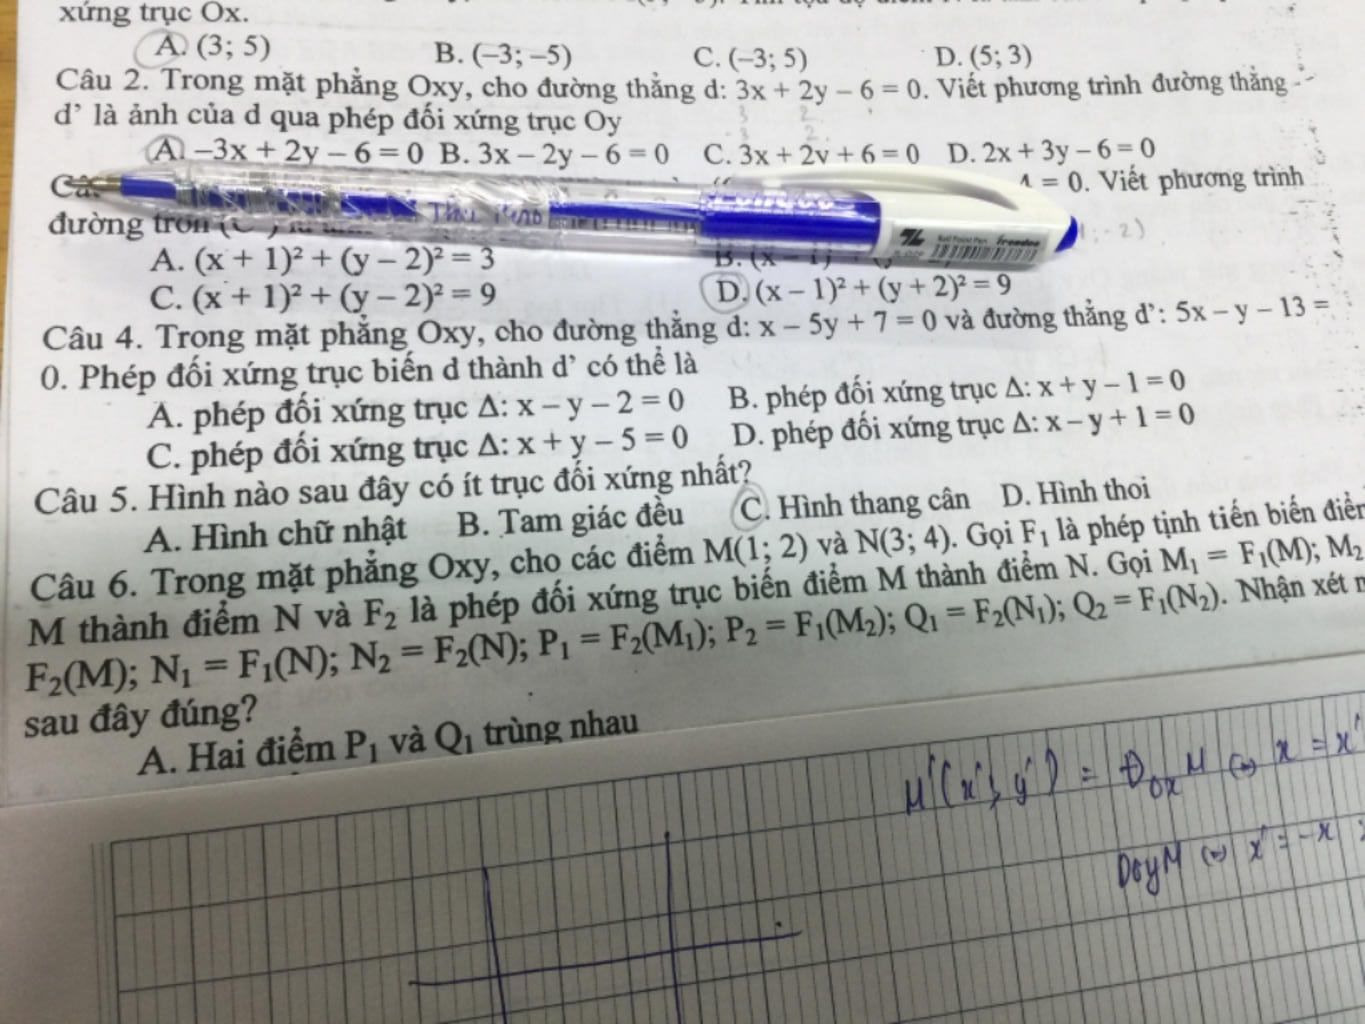 xứng trục Ox.
A. (3; 5) B. (−3; −5) C. (−3; 5) D. (5; 3)
Câu 2. Trong mặt phẳng Oxy, cho đường thẳng d: 3x + 2y − 6 = 0. Viết phương trình đường thẳng
d’ là ảnh của d qua phép đối xứng trục Oy
A. −3x + 2y − 6 = 0 B. 3x − 2y − 6 = 0 C. 3x + 2y + 6 = 0 D. 2x + 3y − 6 = 0
= 0. Viết phương trình
đường tròn
A. (x + 1)² + (y − 2)² = 3
C. (x + 1)² + (y − 2)² = 9 D. (x − 1)² + (y + 2)² = 9
Câu 4. Trong mặt phẳng Oxy, cho đường thẳng d: x − 5y + 7 = 0 và đường thẳng d’: 5x − y − 13 =
0. Phép đối xứng trục biến d thành d’ có thể là
A. phép đối xứng trục Δ: x − y − 2 = 0 B. phép đối xứng trục Δ: x + y − 1 = 0
C. phép đối xứng trục Δ: x + y − 5 = 0 D. phép đối xứng trục Δ: x − y + 1 = 0
Câu 5. Hình nào sau đây có ít trục đối xứng nhất?
A. Hình chữ nhật B. Tam giác đều C. Hình thang cân D. Hình thoi
Câu 6. Trong mặt phẳng Oxy, cho các điểm M(1; 2) và N(3; 4). Gọi F₁ là phép tịnh tiến biến điểm
M thành điểm N và F₂ là phép đối xứng trục biến điểm M thành điểm N. Gọi M₁ = F₁(M); M₂
F₂(M); N₁ = F₁(N); N₂ = F₂(N); P₁ = F₂(M₁); P₂ = F₁(M₂); Q₁ = F₂(N₁); Q₂ = F₁(N₂). Nhận xét
sau đây đúng?
A. Hai điểm P₁ và Q₁ trùng nhau
M'(x'; y') = Đox M ⇔ x = x'
Đoy M ⇔ x' = −x